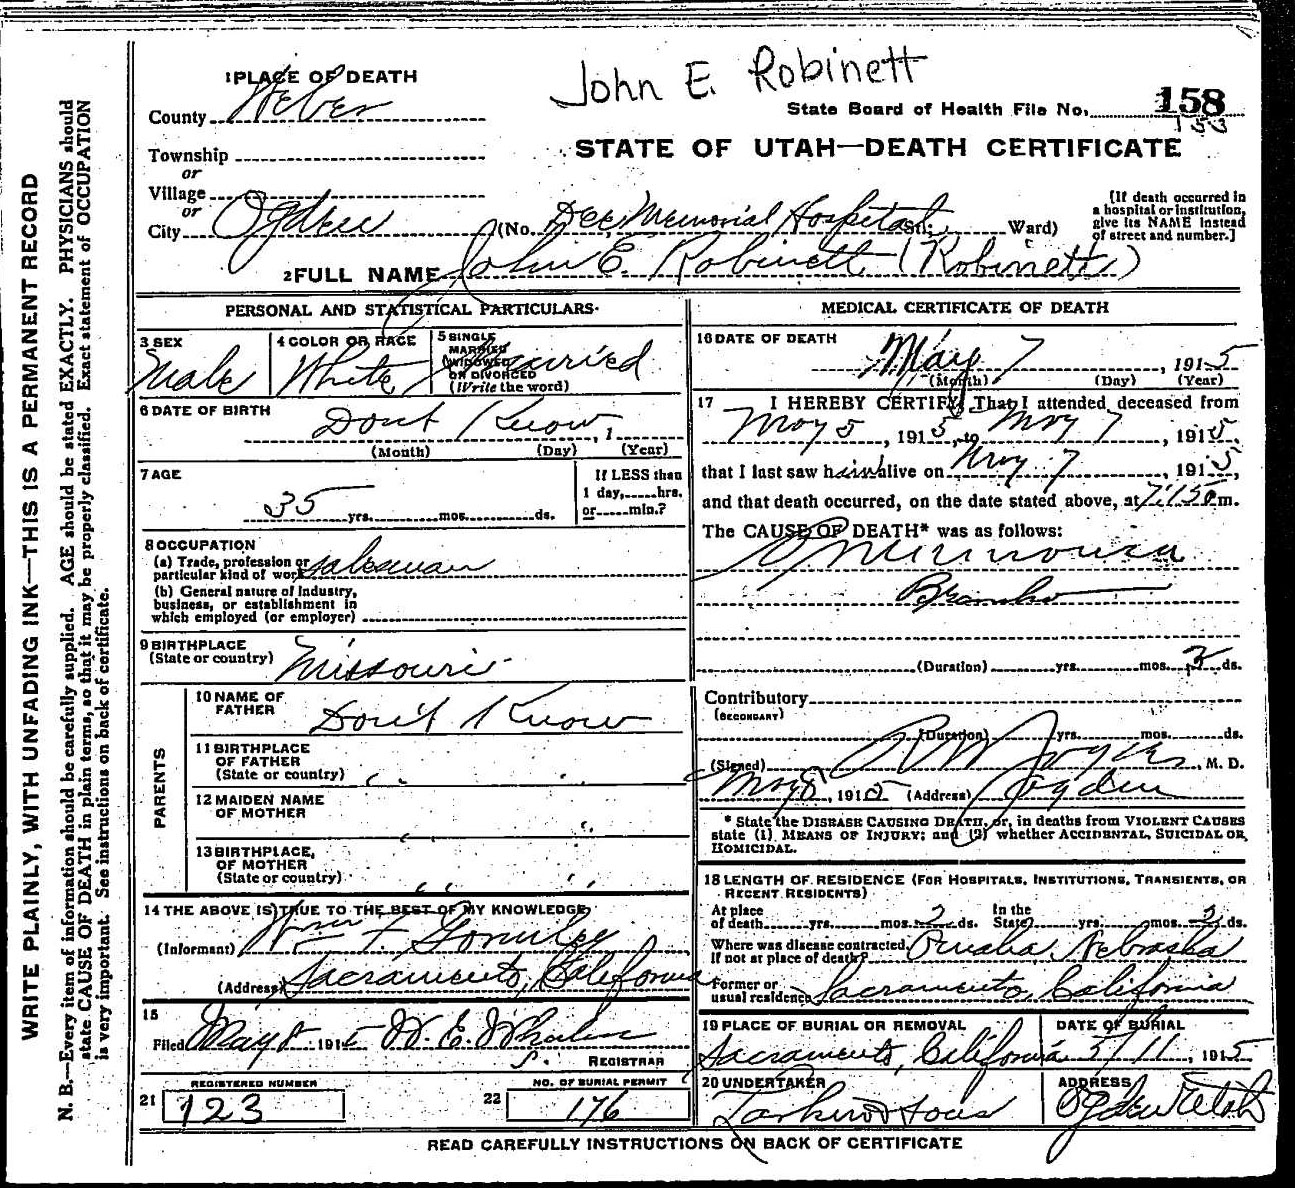 John E. Robinett
1 PLACE OF DEATH
County Weber
State Board of Health File No. 158
153
Township
or
STATE OF UTAH—DEATH CERTIFICATE
Village
or
City Ogden (No. Dee Memorial Hospital St.; Ward)
[If death occurred in
a hospital or institution,
give its NAME instead
of street and number.]
2 FULL NAME John E. Robinett (Robinett)
PERSONAL AND STATISTICAL PARTICULARS
3 SEX
Male
4 COLOR OR RACE
White
5 SINGLE
MARRIED
WIDOWED
OR DIVORCED
(Write the word)
Married
6 DATE OF BIRTH
Dont Know, 1
(Month) (Day) (Year)
7 AGE
35 yrs. mos. ds.
If LESS than
1 day, hrs.
or min.?
8 OCCUPATION
(a) Trade, profession or
particular kind of work salesman
(b) General nature of Industry,
business, or establishment in
which employed (or employer)
9 BIRTHPLACE
(State or country) Missouri
PARENTS
10 NAME OF
FATHER
Don't Know
11 BIRTHPLACE
OF FATHER
(State or country) " "
12 MAIDEN NAME
OF MOTHER
" "
13 BIRTHPLACE,
OF MOTHER
(State or country) " " "
14 THE ABOVE IS TRUE TO THE BEST OF MY KNOWLEDGE
(Informant) Wm F. Gormley
(Address) Sacramento, California
15
Filed May 8 1915 W. E. Whalen
REGISTRAR
REGISTERED NUMBER
21 123
NO. OF BURIAL PERMIT
22 176
MEDICAL CERTIFICATE OF DEATH
16 DATE OF DEATH
May 7, 1915
(Month) (Day) (Year)
17 I HEREBY CERTIFY, That I attended deceased from
May 5, 1915, to May 7, 1915,
that I last saw him alive on May 7, 1915,
and that death occurred, on the date stated above, at 7:15 m.
The CAUSE OF DEATH* was as follows:
Pneumonia
Broncho
(Duration) yrs. mos. 3 ds.
Contributory
(SECONDARY)
(Duration) yrs. mos. ds.
(Signed) , M. D.
May 8, 1915 (Address) Ogden
* State the DISEASE CAUSING DEATH, or, in deaths from VIOLENT CAUSES
state (1) MEANS OF INJURY; and (2) whether ACCIDENTAL, SUICIDAL OR
HOMICIDAL.
18 LENGTH OF RESIDENCE (FOR HOSPITALS, INSTITUTIONS, TRANSIENTS, OR
RECENT RESIDENTS)
At place
of death yrs. mos. 2 ds. In the
State yrs. mos. 2 ds.
Where was disease contracted,
If not at place of death? Omaha, Nebraska
Former or
usual residence Sacramento, California
19 PLACE OF BURIAL OR REMOVAL
Sacramento, California
DATE OF BURIAL
5/11, 1915
20 UNDERTAKER
Larkin & Sons
ADDRESS
Ogden Utah
READ CAREFULLY INSTRUCTIONS ON BACK OF CERTIFICATE
WRITE PLAINLY, WITH UNFADING INK—THIS IS A PERMANENT RECORD
N. B.—Every item of information should be carefully supplied. AGE should be stated EXACTLY. PHYSICIANS should
state CAUSE OF DEATH in plain terms, so that it may be properly classified. Exact statement of OCCUPATION
is very important. See instructions on back of certificate.